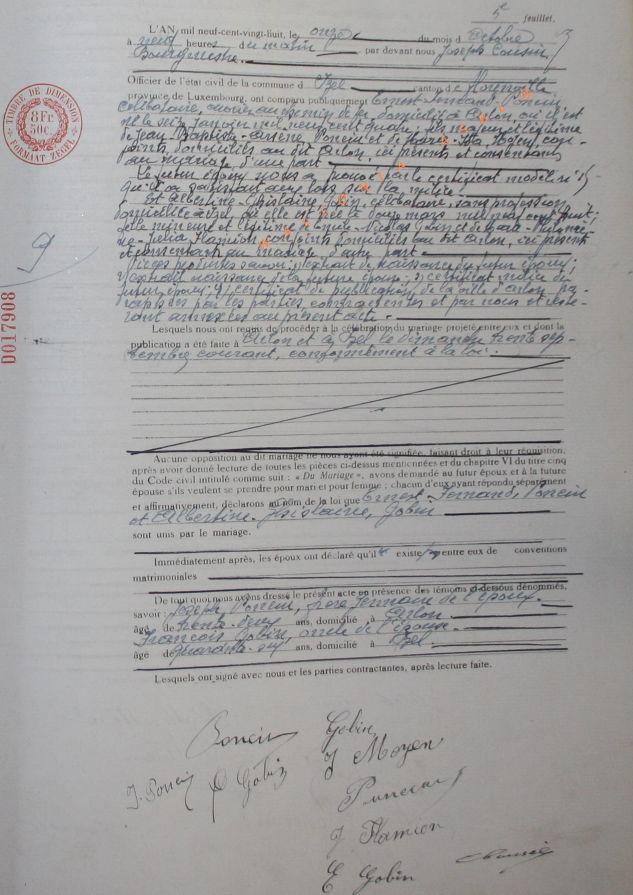 5e feuillet.
L'AN, mil neuf-cent-vingt-huit, le onze du mois d'octobre
à neuf heures du matin, par devant nous Joseph
Bourgmestre
Officier de l'état civil de la commune d'Izel canton de Florenville
province de Luxembourg, ont comparu publiquement Ernest Fernand, Poncin
célibataire, domicilié à Arlon, où il est
né le seize janvier mil neuf cent quatre, fils majeur et légitime
de Jean Baptiste Poncin et de Moyen, con-
joints, domiciliés au dit Arlon, ici présents et consentants
au mariage, d'une part
Le futur époux nous a prouvé par le certificat modèle
qu'il a satisfait aux lois sur la milice.
Et Albertine Ghislaine, Gobin, célibataire, sans profession
domiciliée à Izel, où elle est née le douze mars mil neuf cent huit;
fille mineure et légitime de Nicolas Gobin et de Marie
Flamion, conjoints domiciliés au dit Arlon, ici présents
et consentant au mariage, d'autre part
Pièces produites savoir: 1) extrait de naissance du futur époux;
extrait naissance de la future épouse; 3) certificat milice du
futur époux; 4) certificat de publication de la ville d'Arlon pa-
raphées par les parties contractantes et par nous et reste-
ront annexées au présent acte.
Lesquels nous ont requis de procéder à la célébration du mariage projeté entre eux et dont la
publication a été faite à Arlon et à Izel le dimanche trente sep-
tembre courant, conformément à la loi.
Aucune opposition au dit mariage ne nous ayant été signifiée, faisant droit à leur réquisition,
après avoir donné lecture de toutes les pièces ci-dessus mentionnées et du chapitre VI du titre cinq
du Code civil intitulé comme suit : « Du Mariage », avons demandé au futur époux et à la future
épouse s'ils veulent se prendre pour mari et pour femme ; chacun d'eux ayant répondu séparément
et affirmativement, déclarons au nom de la loi que Ernest Fernand, Poncin
et Albertine, Ghislaine, Gobin
sont unis par le mariage.
Immédiatement après, les époux ont déclaré qu'il existe entre eux de conventions
matrimoniales
De tout quoi nous avons dressé le présent acte en présence des témoins ci-dessous dénommés,
savoir : Joseph Poncin, frère germain de l'époux
âgé de trente-deux ans, domicilié à Arlon
François Gobin, oncle de l'épouse
âgé de quarante-six ans, domicilié à Izel
Lesquels ont signé avec nous et les parties contractantes, après lecture faite.
Poncin Gobin
J Moyen
J. Poncin Gobin
J Flamion
E Gobin
TIMBRE DE DIMENSION
8 Fr
50c.
FORMAAT-ZEGEL
9
D017908